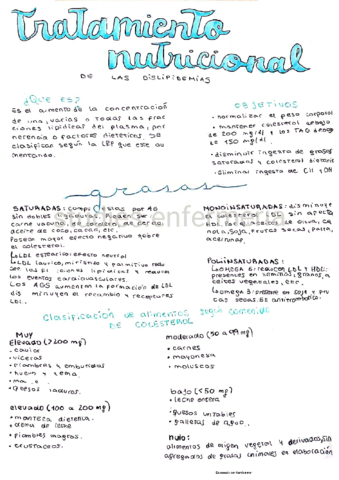 Tratamiento
nutricional
DE LAS DISLIPIDEMIAS
¿QUE ES?
Es el aumento de la concentración
de una, varias o todas las frac
ciones lipídicas del plasma, por
herencia o factores dietéticos. Se
clasifican según la LBP que este au
mentando.
OBJETIVOS
- normalizar el peso corporal
- mantener colesterol debajo
de 200 mg/dl y los TAG debajo
de 150 mg/dl.
- disminuir ingesta de grasas
saturadas y colesterol dietario
- eliminar ingesta de
grasas
SATURADAS: compuestas por AG
sin dobles ligaduras. Pueden ser
carne vacuna, de cordero, de cerdo,
aceite de coco, cacao, etc.
Posee mayor efecto negativo sobre
el colesterol.
esteárico: efecto neutral
láurico, mirístico y palmítico
los eventos cardiovasculares.
Los AGS aumentan la formación de LDL
disminuyen el recambio y receptores
LDL.
MONOINSATURADAS: disminuye
LDL sin afectar
HDL. aceite de oliva, ca
nola, soja, frutos secos, palta,
aceitunas.
POLIINSATURADAS:
omega 6: reducen LDL y HDL.
presentes en semillas, granos, a
ceites vegetales, etc.
omega 3: presente en soja y fru
tas secas. Es antitrombótico.
Clasificación de alimentos según contenido
DE COLESTEROL
MUY
Elevado (>200 mg)
- caviar
- vísceras
- fiambres y embutidos
- huevo y yema
- quesos duros.
elevado (100 a 200 mg)
- manteca dietética
- crema de leche
- fiambres magros
- crustáceos
moderado (50 a 99 mg)
- carnes
- mayonesa
- moluscos
bajo (<50 mg)
- leche entera
- quesos untables
- galletas de agua.
nulo:
alimentos de origen vegetal y derivados, sin
agregados de grasas animales en elaboración